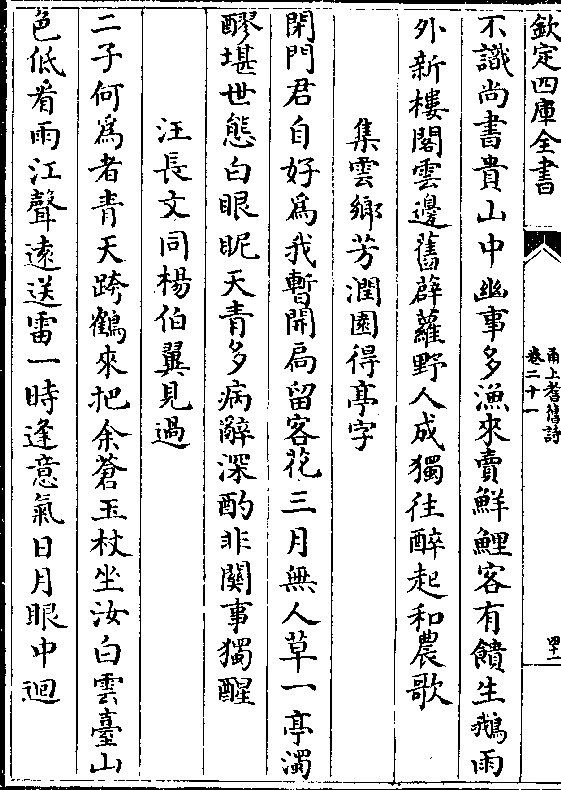 欽定四庫全書
甬上耆舊詩
卷二十一
四十一
不識尚書貴山中幽事多漁來賣鮮鯉客有饋生鵝雨
外新樓閣雲邊舊薜蘿野人成獨往醉起和農歌
集雲鄉芳潤園得亭字
閉門君自好為我暫開扃留客花三月無人草一亭濁
醪堪世態白眼眤天青多病辭深酌非關事獨醒
汪長文同楊伯翼見過
二子何為者青天跨鶴來把余蒼玉杖坐汝白雲臺山
色低看雨江聲遠送雷一時逢意氣日月眼中迴